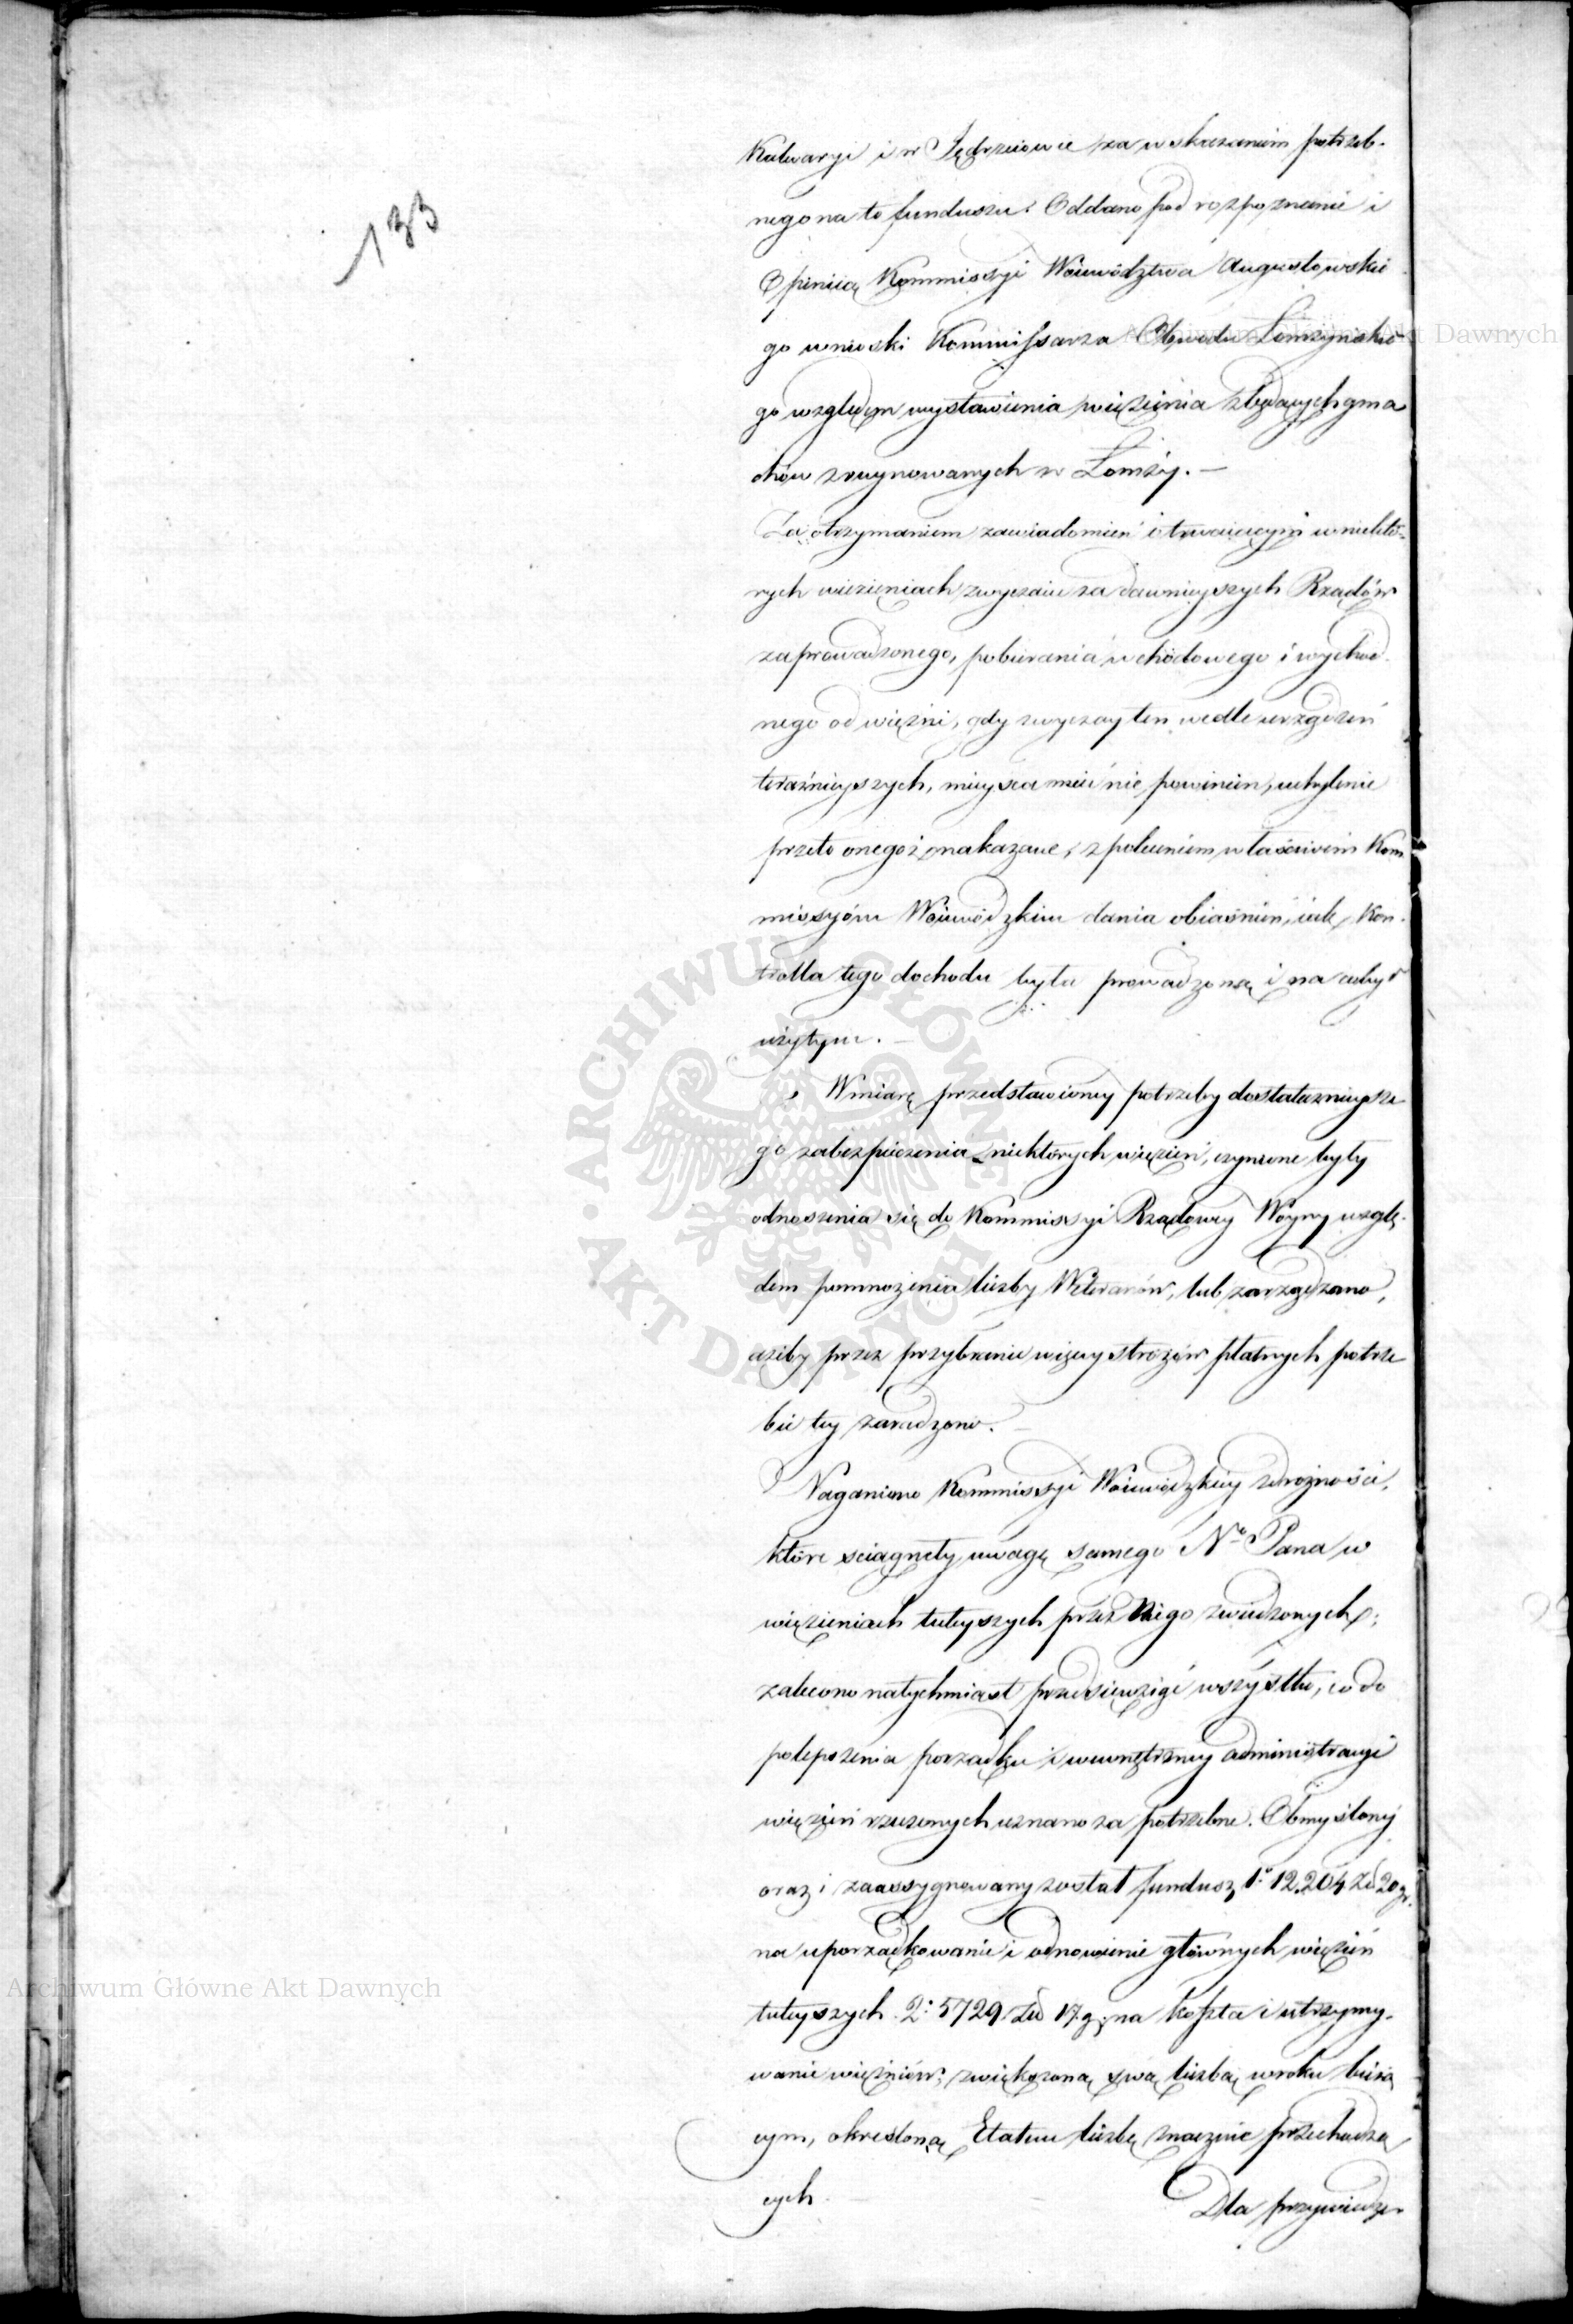 133
Kalwaryi i w Jędrzeiowie za wskazaniem potrzeb-
nego na to funduszu. Oddano pod rozpoznanie i
Opiniią Kommissyi Woiewództwa Augustowskie
go wnioski Kommissarza Obwodu Łomżyńskie-
go względem wystawienia więzienia z będących gma
chów zruynowanych w Łomży. —
Za otrzymaniem zawiadomień o trwaiącym w niektó-
rych więzieniach zwyczaiu za dawnieyszych Rządów
zaprowadzonego, pobierania wchodowego i wychod-
nego od więźni, gdy zwyczay ten wedle urządzeń
teraźnieyszych, mieysca mieć nie powinien, uchylenie
przeto onegoż nakazane, z poleceniem właściwem Kom
missyóm Woiewódzkim dania obiaśnień, iak Kon-
trolla tego dochodu była prowadzoną i na coby
użytym. —
W miarę przedstawioney potrzeby dostatecznieysze
go zabezpieczenia niektórych więzień, czynione były
odnoszenia się do Kommissyi Rządowey Woyny wzglę-
dem pomnożenia liczby Weteranów, lub zarządzono,
ażeby przez przybranie więcey stróżów płatnych potrze
bie tey zaradzono. —
Naganiono Kommissyi Woiewódzkiey zdrożności,
które ściągnęły uwagę samego No Pana w
więzieniach tuteyszych przez Niego zwiedzonych;
zalecono natychmiast przedsięwziąć wszystko, co do
polepszenia porządku i wewnętrzney administracyi
więzień rzeczonych uznano za potrzebne. Obmyślony
oraz i zaassygnowany został fundusz 1o 12,204 Zł 20 gr.
na uporządkowanie i odnowienie głównych więzień
tuteyszych. 2o 5729 Zł 17 g. na koszta i utrzymy-
wanie więźniów, zwiększoną swą liczbą w roku bieżą
cym, określoną Etatem liczbę znacznie przechodzą
cych. —
Dla przywiedze-
Archiwum Główne Akt Dawnych
Archiwum Główne Akt Dawnych
ARCHIWUM GŁÓWNE AKT DAWNYCH